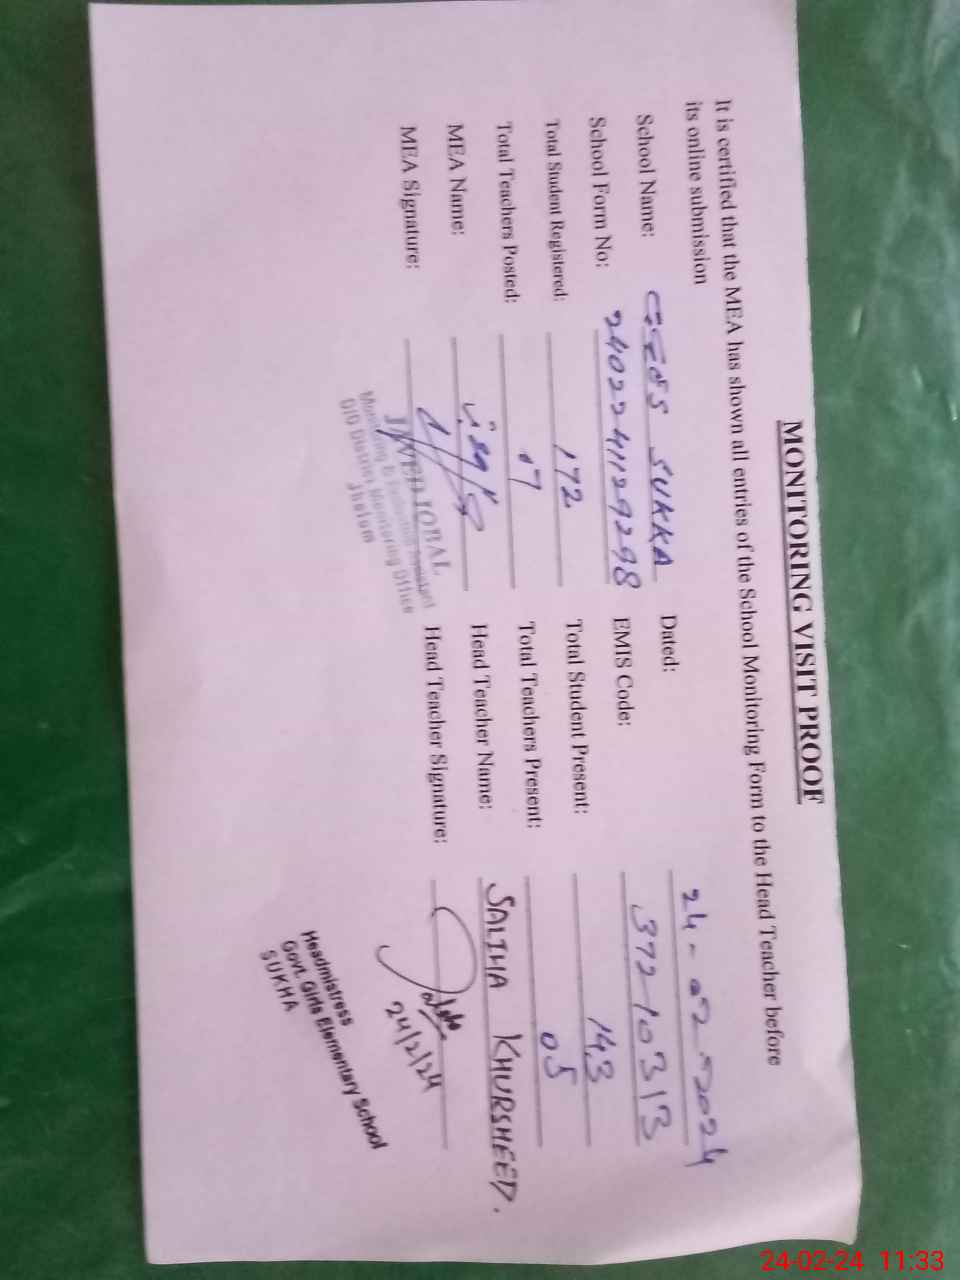 MONITORING VISIT PROOF
It is certified that the MEA has shown all entries of the School Monitoring Form to the Head Teacher before
its online submission
School Name: GGES SUKKA Dated: 24-02-2024
School Form No: 2402241129298 EMIS Code: 37210313
Total Student Registered: 172 Total Student Present: 143
Total Teachers Posted: 07 Total Teachers Present: 05
MEA Name: Head Teacher Name: SALIHA KHURSHEED.
MEA Signature: Head Teacher Signature:
24/2/24
IQBAL
Monitoring & Evaluation Assistant
O/O District Monitoring Office
Jhelum
Headmistress
Govt. Girls Elementary School
SUKHA
24-02-24 11:33